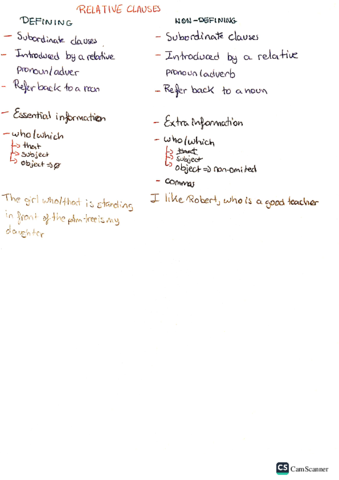 RELATIVE CLAUSES
DEFINING
- Subordinate clauses
- Introduced by a relative
pronoun/adver
- Refer back to a noun
- Essential information
- who/which
that
subject
object => ø
The girl who/that is standing
in front of the palm tree is my
daughter
NON-DEFINING
- Subordinate clauses
- Introduced by a relative
pronoun/adverb
- Refer back to a noun
- Extra information
- who/which
that
subject
object => non-omited
- commas
I like Robert, who is a good teacher
CS CamScanner